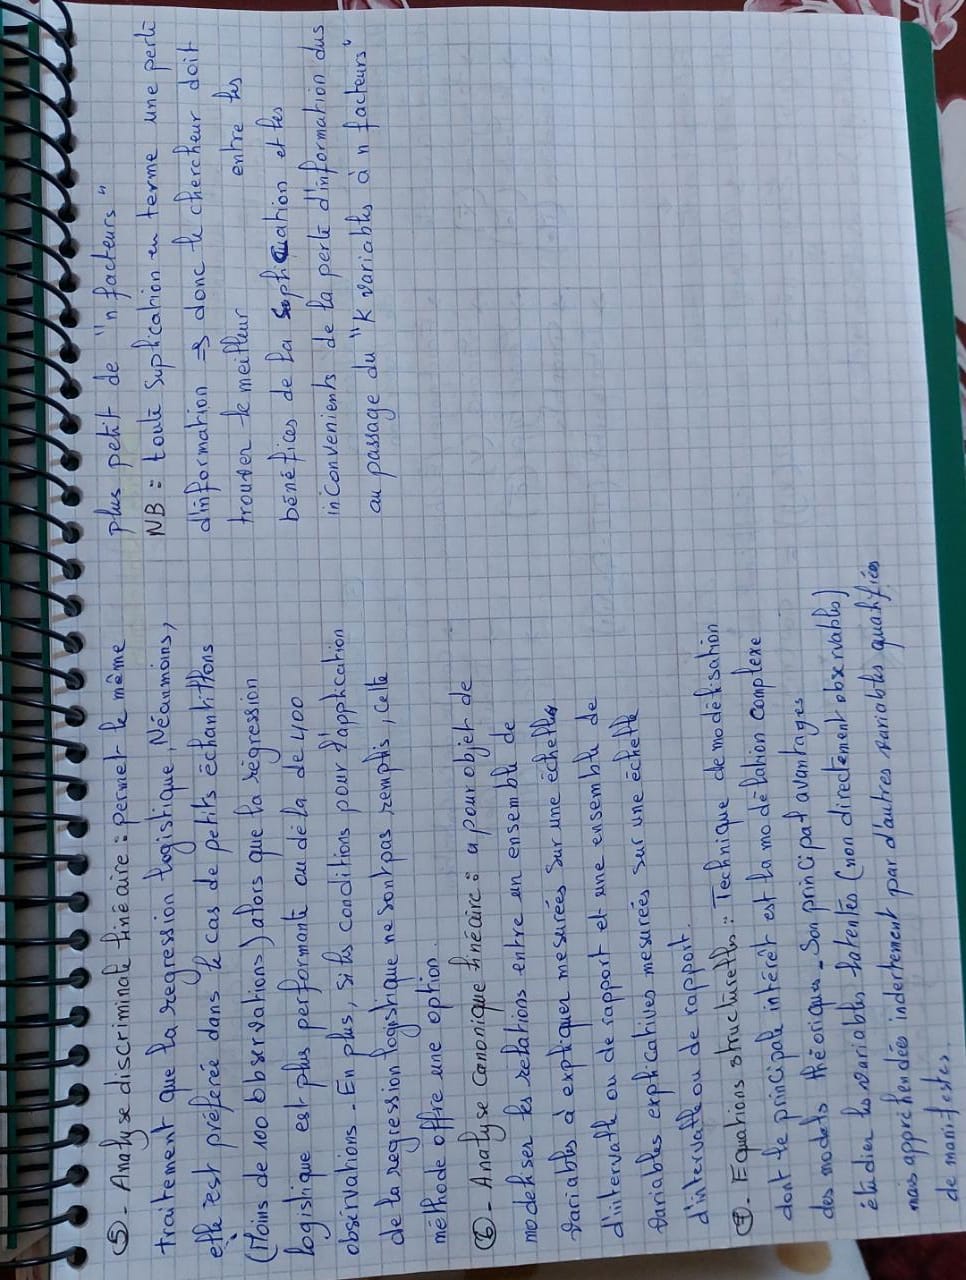 ⑤- Analyse discriminate linéaire : permet le même
traitement que la regression logistique, Néanmoins,
elle est préférée dans le cas de petits échantillons
(Moins de 100 observations) alors que la régression
logistique est plus performante au déla de 400
observations. En plus, si les conditions pour l'application
de la regression logistique ne sont pas remplis, cette
méthode offre une option.
⑥- Analyse canonique linéaire : a pour objet de
modeliser les relations entre un ensemble de
variables à expliquer mesurées sur une échelle
d'intervalle ou de rapport et une ensemble de
variables explicatives mesurées sur une échelle
d'intervalle ou de rapport.
⑦. Equations structurelles : Technique de modélisation
dont le principale intérêt est la modélation complexe
des models théoriques. Son principal avantages
étudier les variables latentes (non directement observables)
mais appréhendées indertement par d'autres variables qualifiées
de manifestes.
plus petit de "n facteurs"
NB : toute suplication en terme une perte
d'information => donc le chercheur doit
trouver le meilleur entre les
bénéfices de la et les
inconvenients de la perte d'information dus
au passage du "K variables à n facteurs"